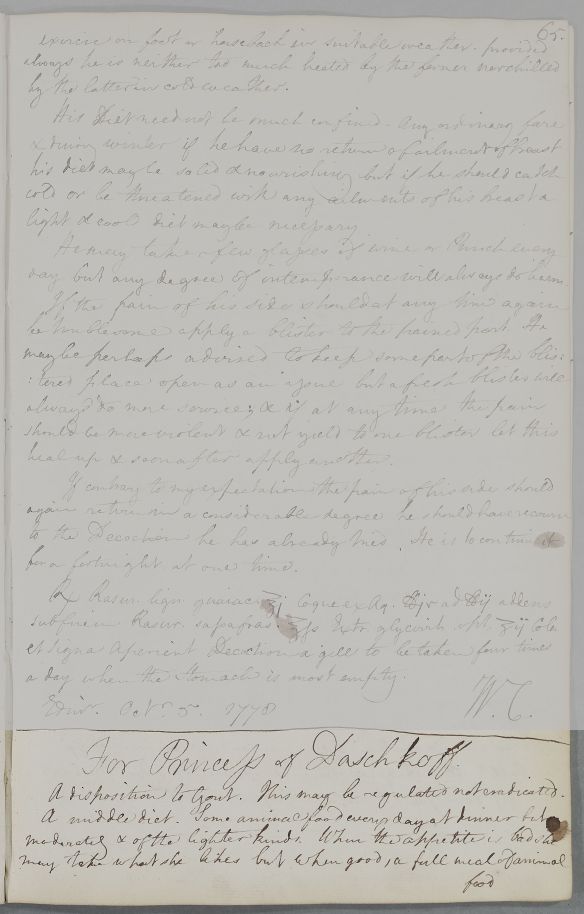 65.
exercise on foot or horseback in suitable weather. provided
always he is neither too much heated by the former nor chilled
by the latter in cold weather.
His Diet need not be much confined. Any ordinary fare
& during winter if he have no return of ailment of Breast
his diet may be solid & nourishing but if he should catch
cold or be threatened with any ailments of his breast a
light & cool diet may be necessary
He may take a few glasses of wine or Punch every
day but any degree of intemperance will always do harm
If the pain of his side should at any time again
be troublesome apply a blister to the pained part. He
may be perhaps advised to keep some part of the blis:
:tered place open as an issue but a fresh blister will
always do more service; & if at any time the pain
should be more violent & not yield to one blister let this
heal up & soon after apply another.
If contrary to my expectation the pain of his side should
again return in a considerable degree he should have recourse
to the Decoction he has already tried. He is to continue it
for a fortnight at one time.
Rx Rasur. lign. guaiac. ℥j Coque ex Aq. ad addens
sub finem Rasur. sassafras. ℥ss Extr. glycirrh. ʒij Cola
et signa Aperient Decoction a gill to be taken four times
a day when the stomach is most empty.
Edinr. Octr. 5. 1778 W.C.
For Princess of Daschkoff.
A disposition to Gout. This may be regulated not eradicated.
A middle diet. Some animal food every day at dinner but
moderately & of the lighter kinds. When the appetite is bad she
may take what she likes but when good, a full meal of animal
food